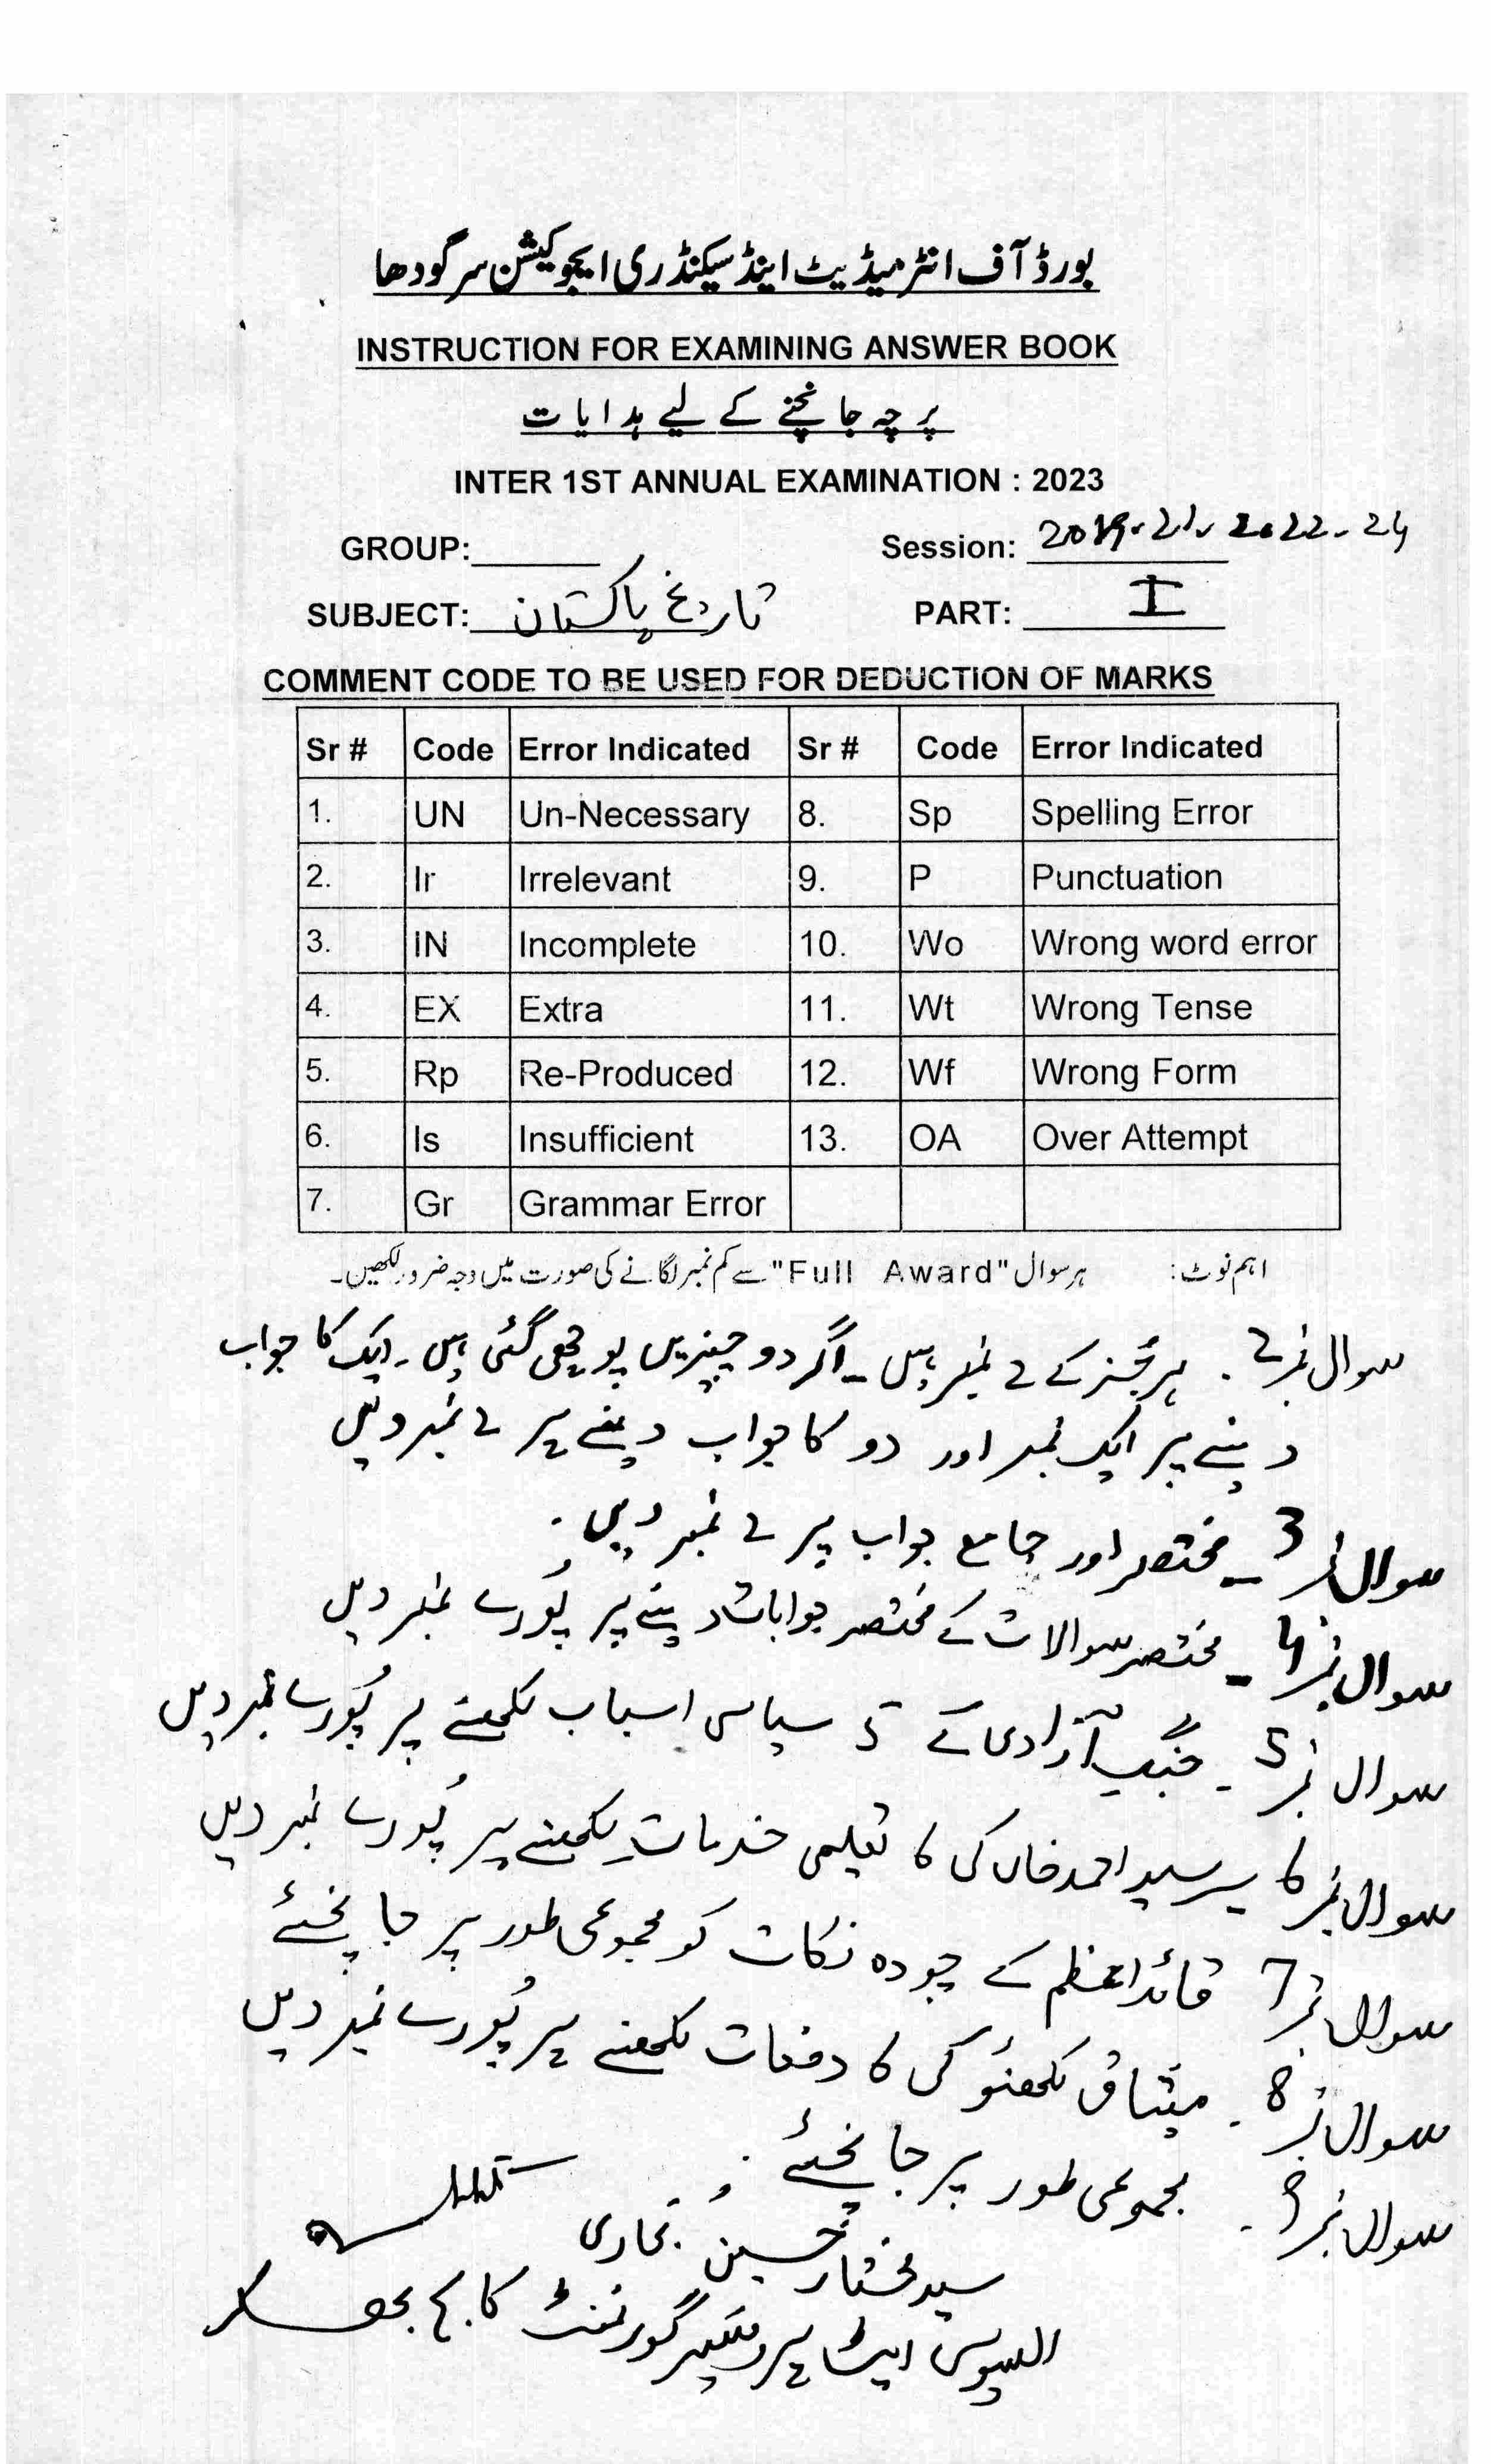 بورڈ آف انٹرمیڈیٹ اینڈ سیکنڈری ایجوکیشن سرگودھا
INSTRUCTION FOR EXAMINING ANSWER BOOK
پرچہ جانچنے کے لیے ہدایات
INTER 1ST ANNUAL EXAMINATION : 2023
GROUP: Session: 2019-21, 2022-24
SUBJECT: تاریخ پاکستان PART: I
COMMENT CODE TO BE USED FOR DEDUCTION OF MARKS
Sr # Code Error Indicated Sr # Code Error Indicated
1. UN Un-Necessary 8. Sp Spelling Error
2. Ir Irrelevant 9. P Punctuation
3. IN Incomplete 10. Wo Wrong word error
4. EX Extra 11. Wt Wrong Tense
5. Rp Re-Produced 12. Wf Wrong Form
6. Is Insufficient 13. OA Over Attempt
7. Gr Grammar Error
اہم نوٹ: ہر سوال "Full Award" سے کم نمبر لگانے کی صورت میں وجہ ضرور لکھیں۔
سوال نمبر 2 . ہر جز کے 2 نمبر ہیں ۔ اگر دو چیزیں پوچھی گئی ہیں ۔ ایک کا جواب
دینے پر ایک نمبر اور دو کا جواب دینے پر 2 نمبر دیں
سوال نمبر 3 ۔ مختصر اور جامع جواب پر 2 نمبر دیں .
سوال نمبر 4 ۔ مختصر سوالات کے مختصر جوابات دینے پر پُورے نمبر دیں
سوال نمبر 5 ۔ جنگِ آزادی کے سیاسی اسباب لکھنے پر پُورے نمبر دیں
سوال نمبر 6 سر سید احمد خاں کی تعلیمی خدمات لکھنے پر پُورے نمبر دیں
سوال نمبر 7 قائداعظم کے چودہ نکات کو مجموعی طور پر جانچئے
سوال نمبر 8 ۔ میثاق لکھنؤ کی دفعات لکھنے پر پُورے نمبر دیں
سوال نمبر 9 ۔ مجموعی طور پر جانچئے .
سید مختار حسین بخاری
ایسوسی ایٹ پروفیسر گورنمنٹ کالج بھکر